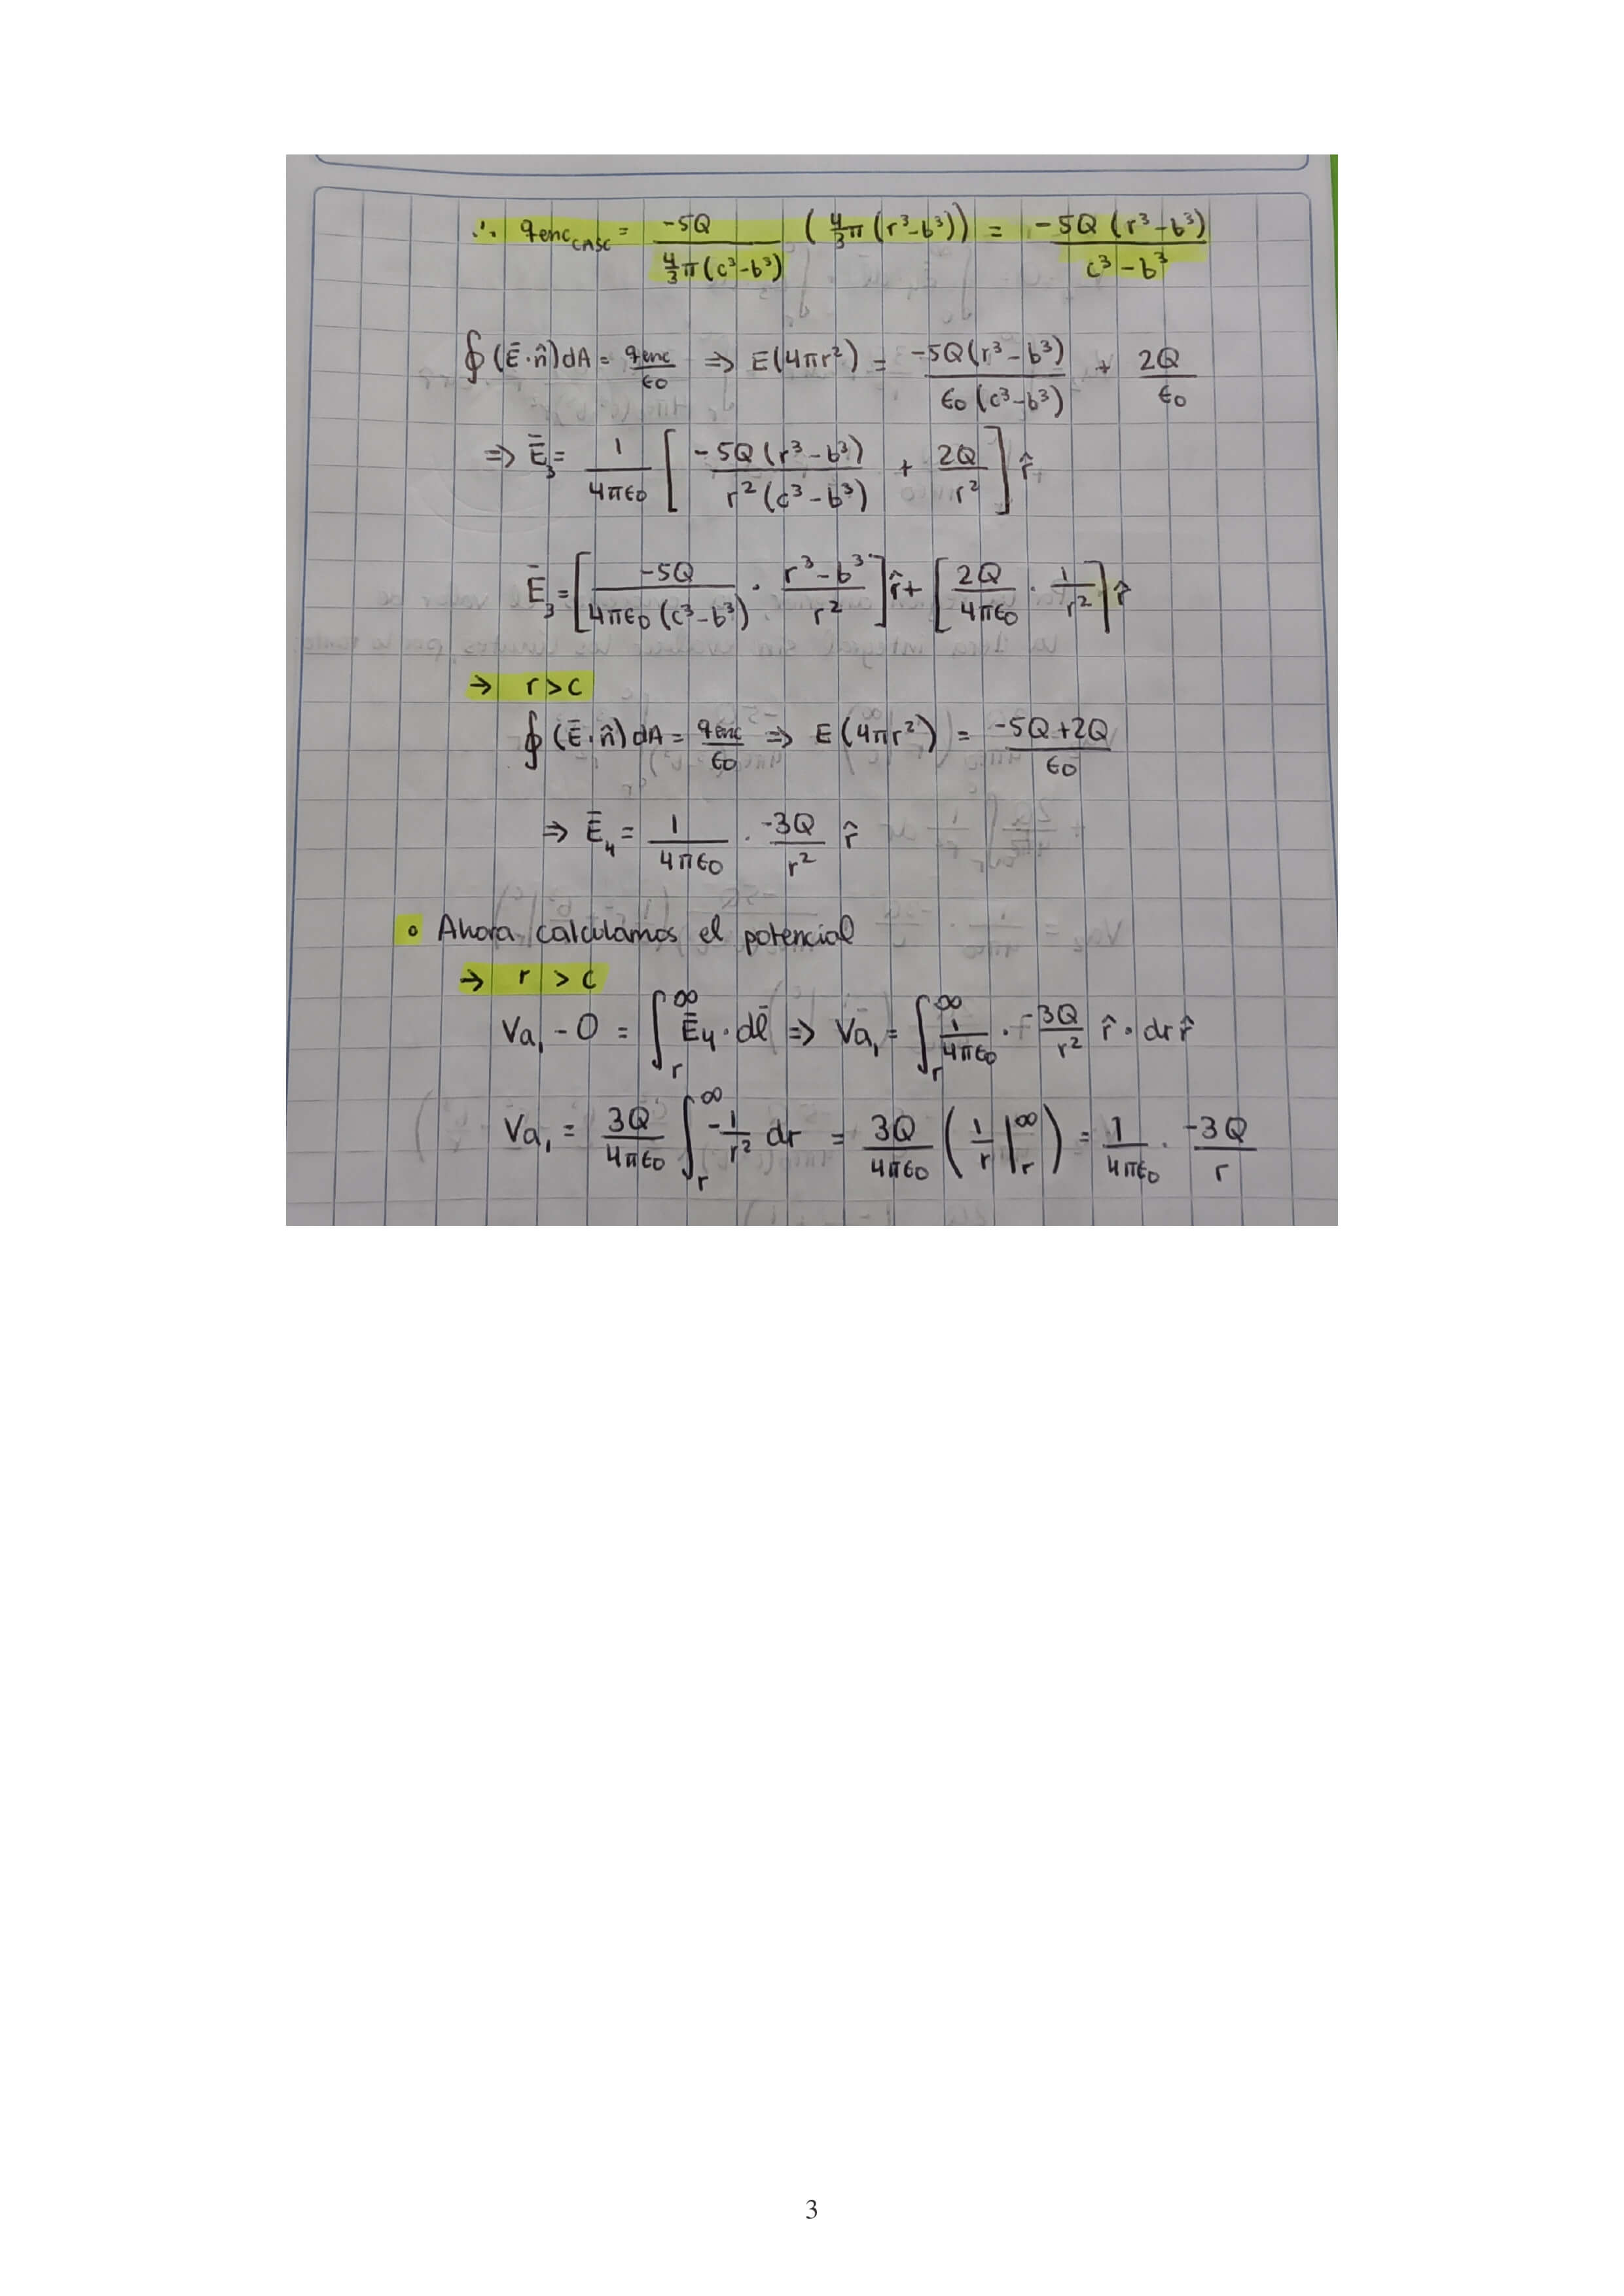 ∴ qenc_CASC = -5Q / (4/3 π (c³-b³)) (4/3 π (r³-b³)) = -5Q (r³-b³) / (c³-b³)
∮ (Ē·n̂) dA = qenc/ε₀ ⇒ E(4πr²) = -5Q(r³-b³) / (ε₀ (c³-b³)) + 2Q/ε₀
⇒ Ē₃ = 1/(4πε₀) [ -5Q (r³-b³) / (r² (c³-b³)) + 2Q/r² ] r̂
Ē₃ = [ -5Q / (4πε₀ (c³-b³)) · (r³-b³)/r² ] r̂ + [ 2Q/(4πε₀) · 1/r² ] r̂
→ r > c
∮ (Ē·n̂) dA = qenc/ε₀ ⇒ E(4πr²) = (-5Q+2Q)/ε₀
⇒ Ē₄ = 1/(4πε₀) · -3Q/r² r̂
• Ahora calculamos el potencial
→ r > c
Va₁ - 0 = ∫_r^∞ Ē₄ · dl̄ ⇒ Va₁ = ∫_r^∞ 1/(4πε₀) · -3Q/r² r̂ · dr r̂
Va₁ = 3Q/(4πε₀) ∫_r^∞ -1/r² dr = 3Q/(4πε₀) ( 1/r |_r^∞ ) = 1/(4πε₀) · -3Q/r
3